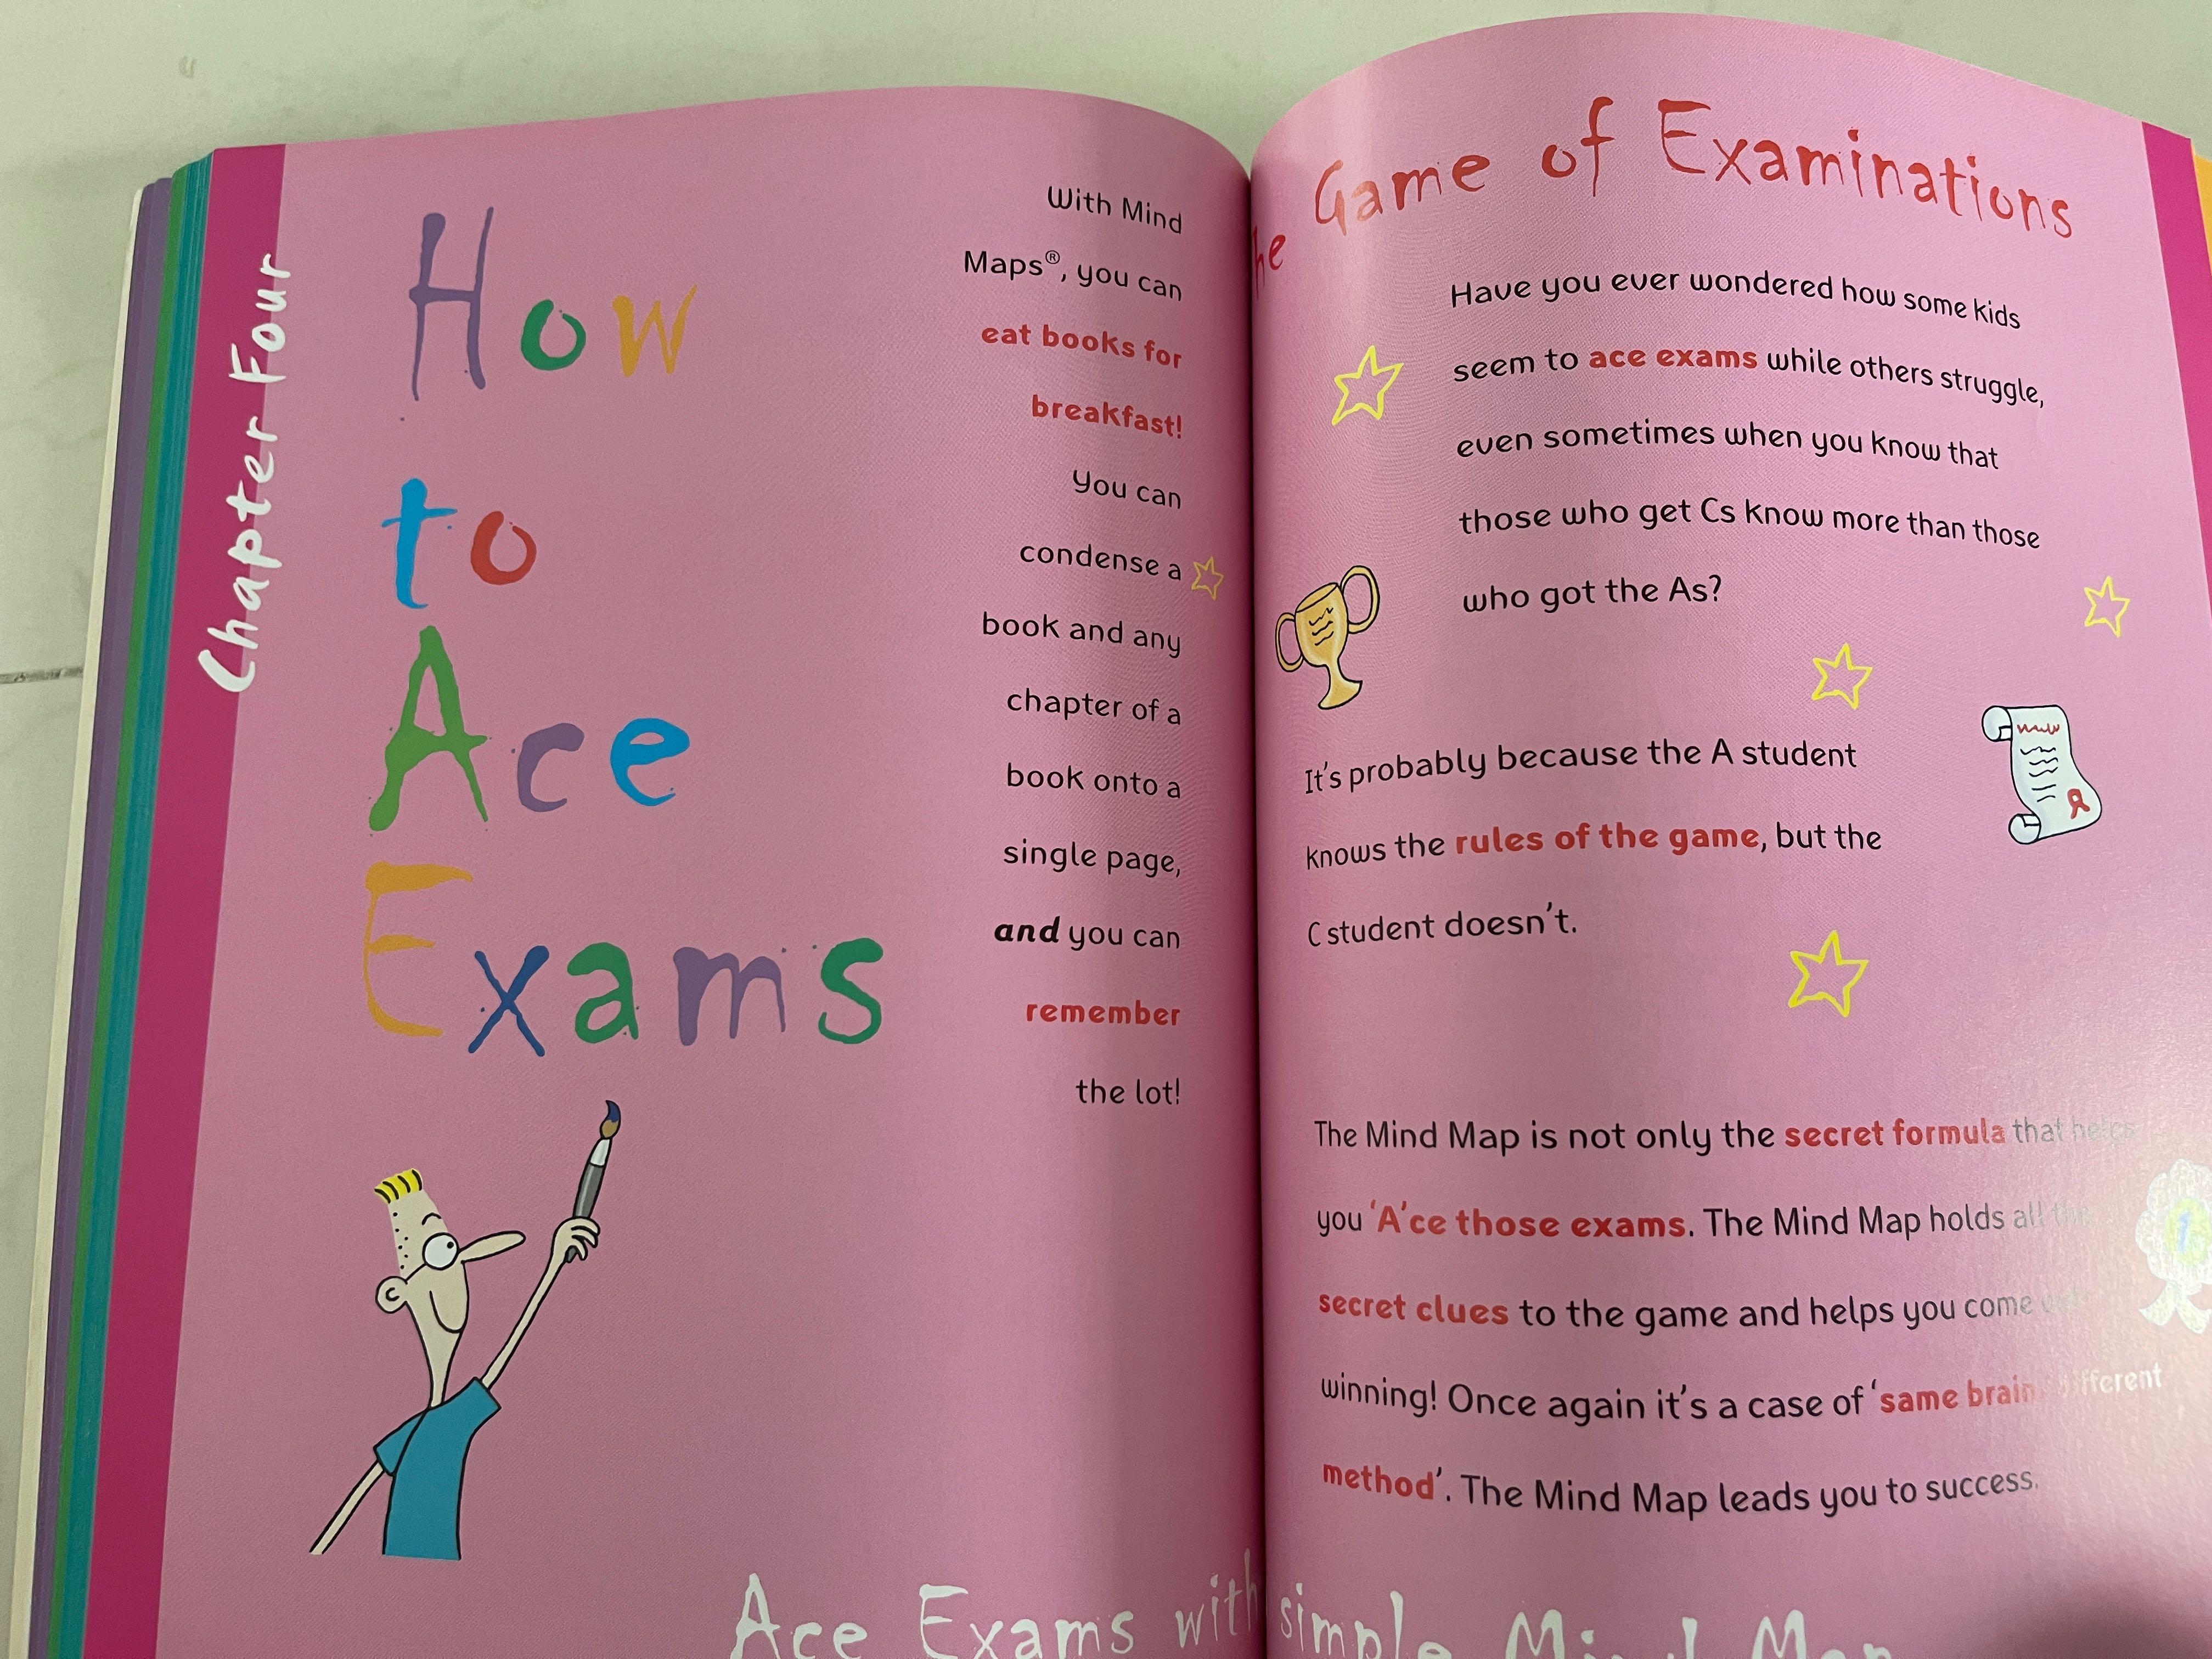 Chapter Four
How
to
Ace
Exams
With Mind
Maps®, you can
eat books for
breakfast!
You can
condense a
book and any
chapter of a
book onto a
single page,
and you can
remember
the lot!
Game of Examinations
Have you ever wondered how some kids
seem to ace exams while others struggle,
even sometimes when you know that
those who get Cs know more than those
who got the As?
It's probably because the A student
knows the rules of the game, but the
C student doesn't.
The Mind Map is not only the secret formula that helps
you 'A'ce those exams. The Mind Map holds all the
secret clues to the game and helps you come
winning! Once again it's a case of 'same brain, different
method'. The Mind Map leads you to success.
1
Ace Exams with simple Mind Map